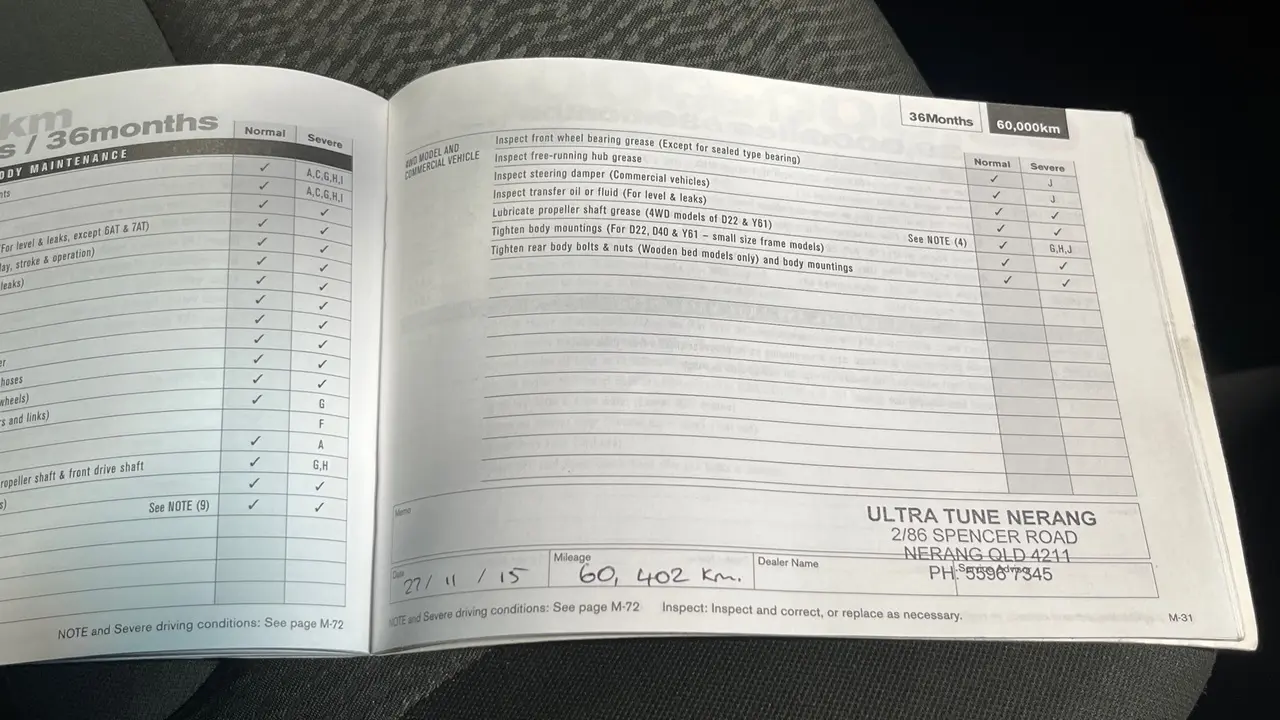 km
s / 36months
Normal
Severe
ODY MAINTENANCE
nts
✓ A,C,G,H,I
✓ A,C,G,H,I
✓ ✓
(For level & leaks, except 6AT & 7AT) ✓ ✓
lay, stroke & operation) ✓ ✓
leaks) ✓ ✓
✓ ✓
✓ ✓
✓ ✓
er ✓ ✓
hoses ✓ ✓
wheels) ✓ G
s and links) F
✓ A
ropeller shaft & front drive shaft ✓ G,H
✓ ✓
s) See NOTE (9) ✓ ✓
NOTE and Severe driving conditions: See page M-72
36Months
60,000km
4WD MODEL AND
COMMERCIAL VEHICLE
Normal
Severe
Inspect front wheel bearing grease (Except for sealed type bearing) ✓ J
Inspect free-running hub grease ✓ J
Inspect steering damper (Commercial vehicles) ✓ ✓
Inspect transfer oil or fluid (For level & leaks) ✓ ✓
Lubricate propeller shaft grease (4WD models of D22 & Y61) See NOTE (4) ✓ G,H,J
Tighten body mountings (For D22, D40 & Y61 – small size frame models) ✓ ✓
Tighten rear body bolts & nuts (Wooden bed models only) and body mountings ✓ ✓
Memo
ULTRA TUNE NERANG
2/86 SPENCER ROAD
NERANG QLD 4211
PH: 5596 7345
Date
27/11/15
Mileage
60,402 Km.
Dealer Name
Service Advisor
NOTE and Severe driving conditions: See page M-72 Inspect: Inspect and correct, or replace as necessary.
M-31